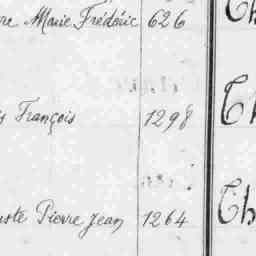 re Marie Frédéric 626
s François 1298
uste Pierre Jean 1264